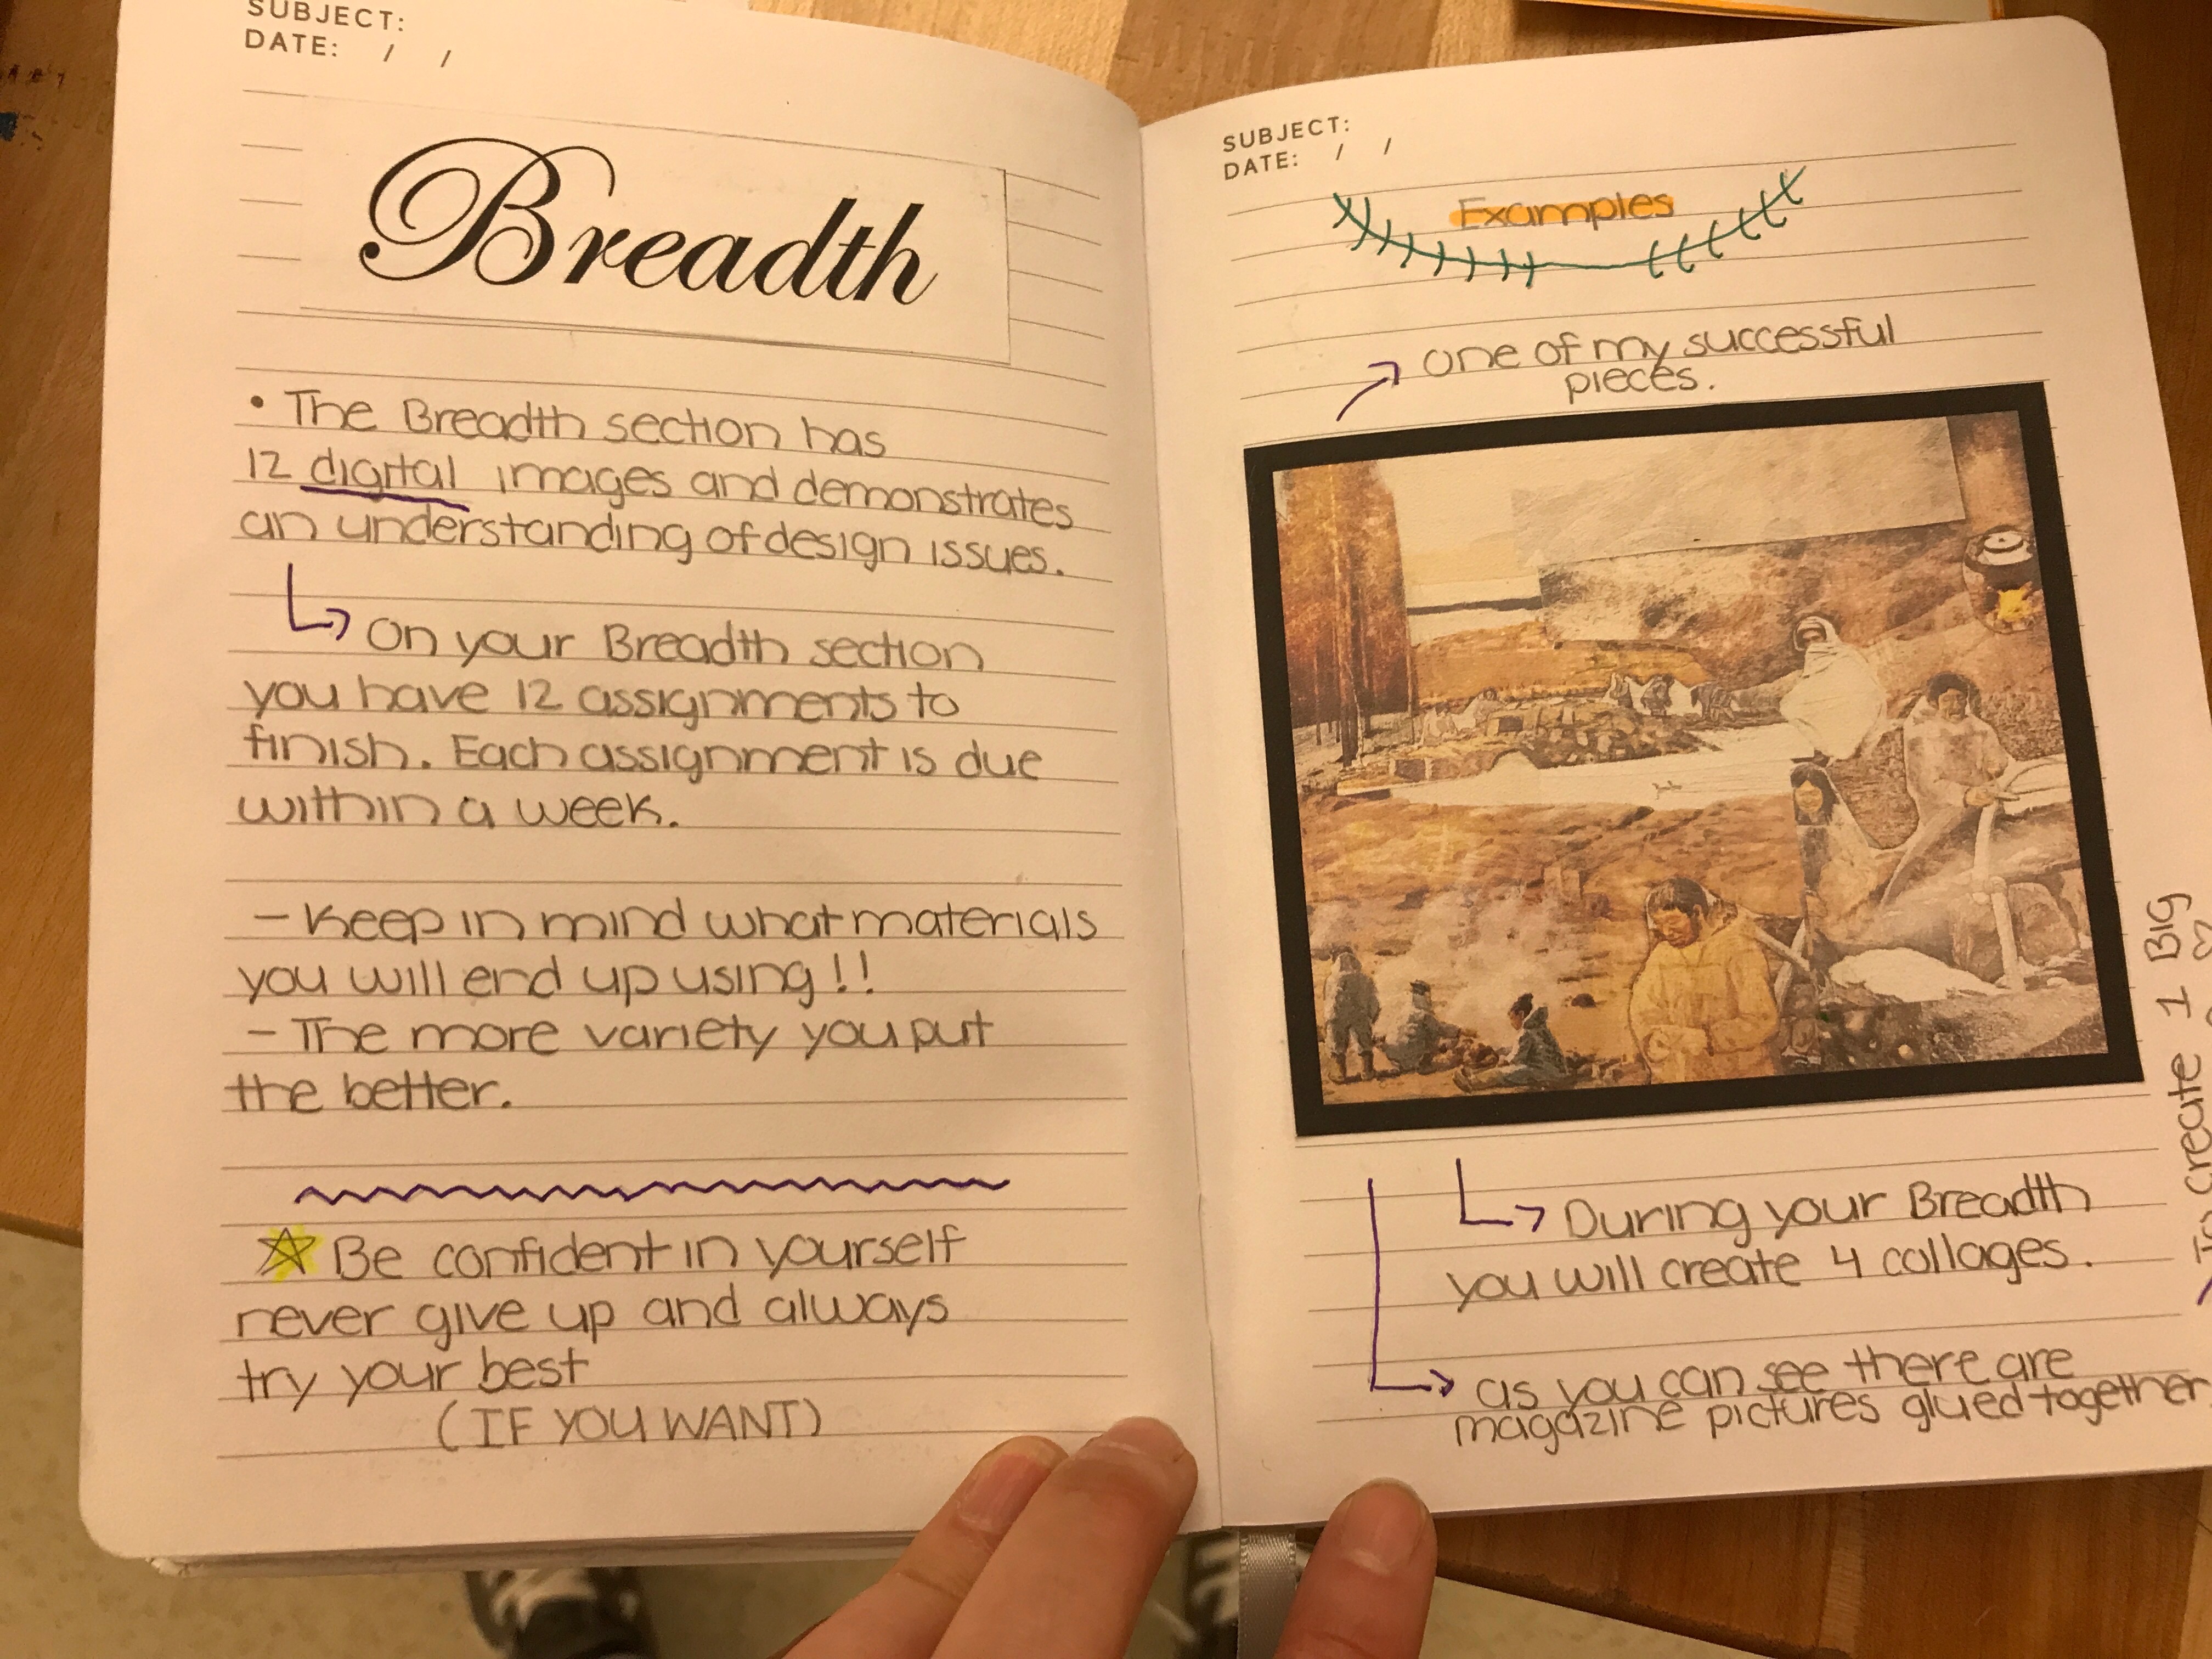 SUBJECT:
DATE: / /
Breadth
• The Breadth section has
12 digital images and demonstrates
an understanding of design issues.
On your Breadth section
you have 12 assignments to
finish. Each assignment is due
within a week.
- Keep in mind what materials
you will end up using!!
- The more variety you put
the better.
Be confident in yourself
never give up and always
try your best
(IF YOU WANT)
SUBJECT:
DATE: / /
Examples
one of my successful
pieces.
During your Breadth
you will create 4 collages.
as you can see there are
magazine pictures glued together
To create 1 BIG